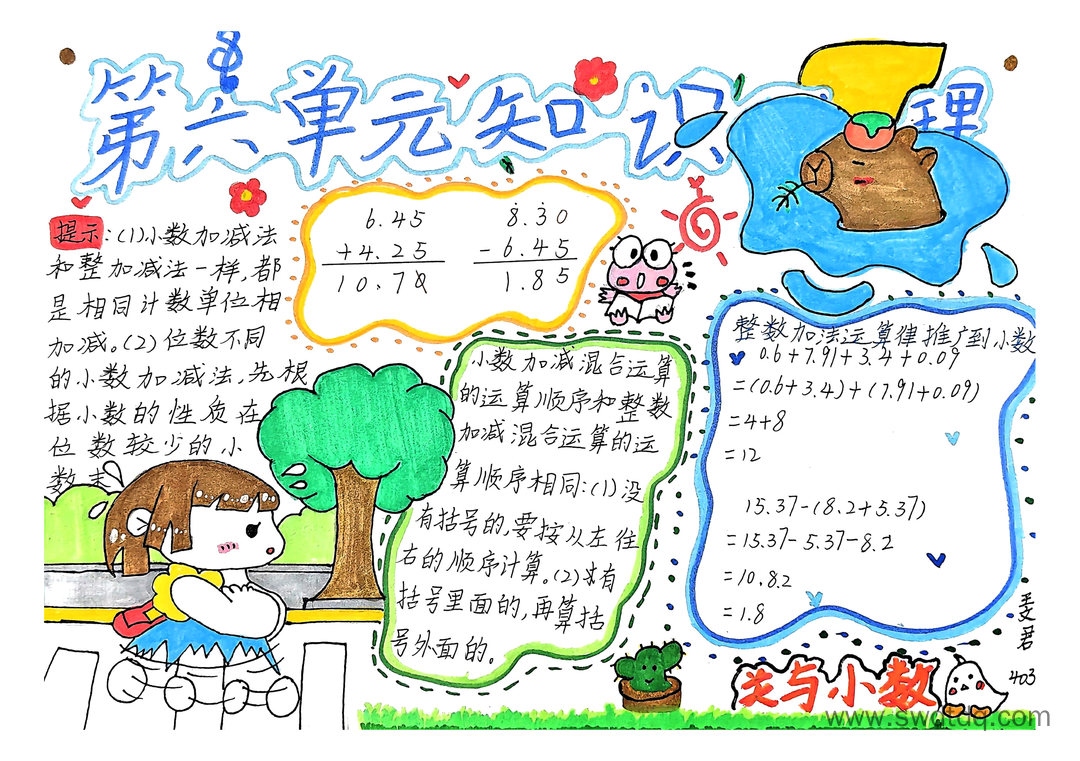 第六单元知识 理
提示:(1)小数加减法
和整加减法一样,都
是相同计数单位相
加减。(2)位数不同
的小数加减法,先根
据小数的性质在
位数较少的小
数末
6.45
+4.25
10.70
8.30
-6.45
1.85
小数加减混合运算
的运算顺序和整数
加减混合运算的运
算顺序相同:(1)没
有括号的,要按从左往
右的顺序计算。(2)有
括号里面的,再算括
号外面的。
整数加法运算律推广到小数
0.6+7.91+3.4+0.09
=(0.6+3.4)+(7.91+0.09)
=4+8
=12
15.37-(8.2+5.37)
=15.37-5.37-8.2
=10.8.2
=1.8
君
403
关与小数
www.swqtqq.com